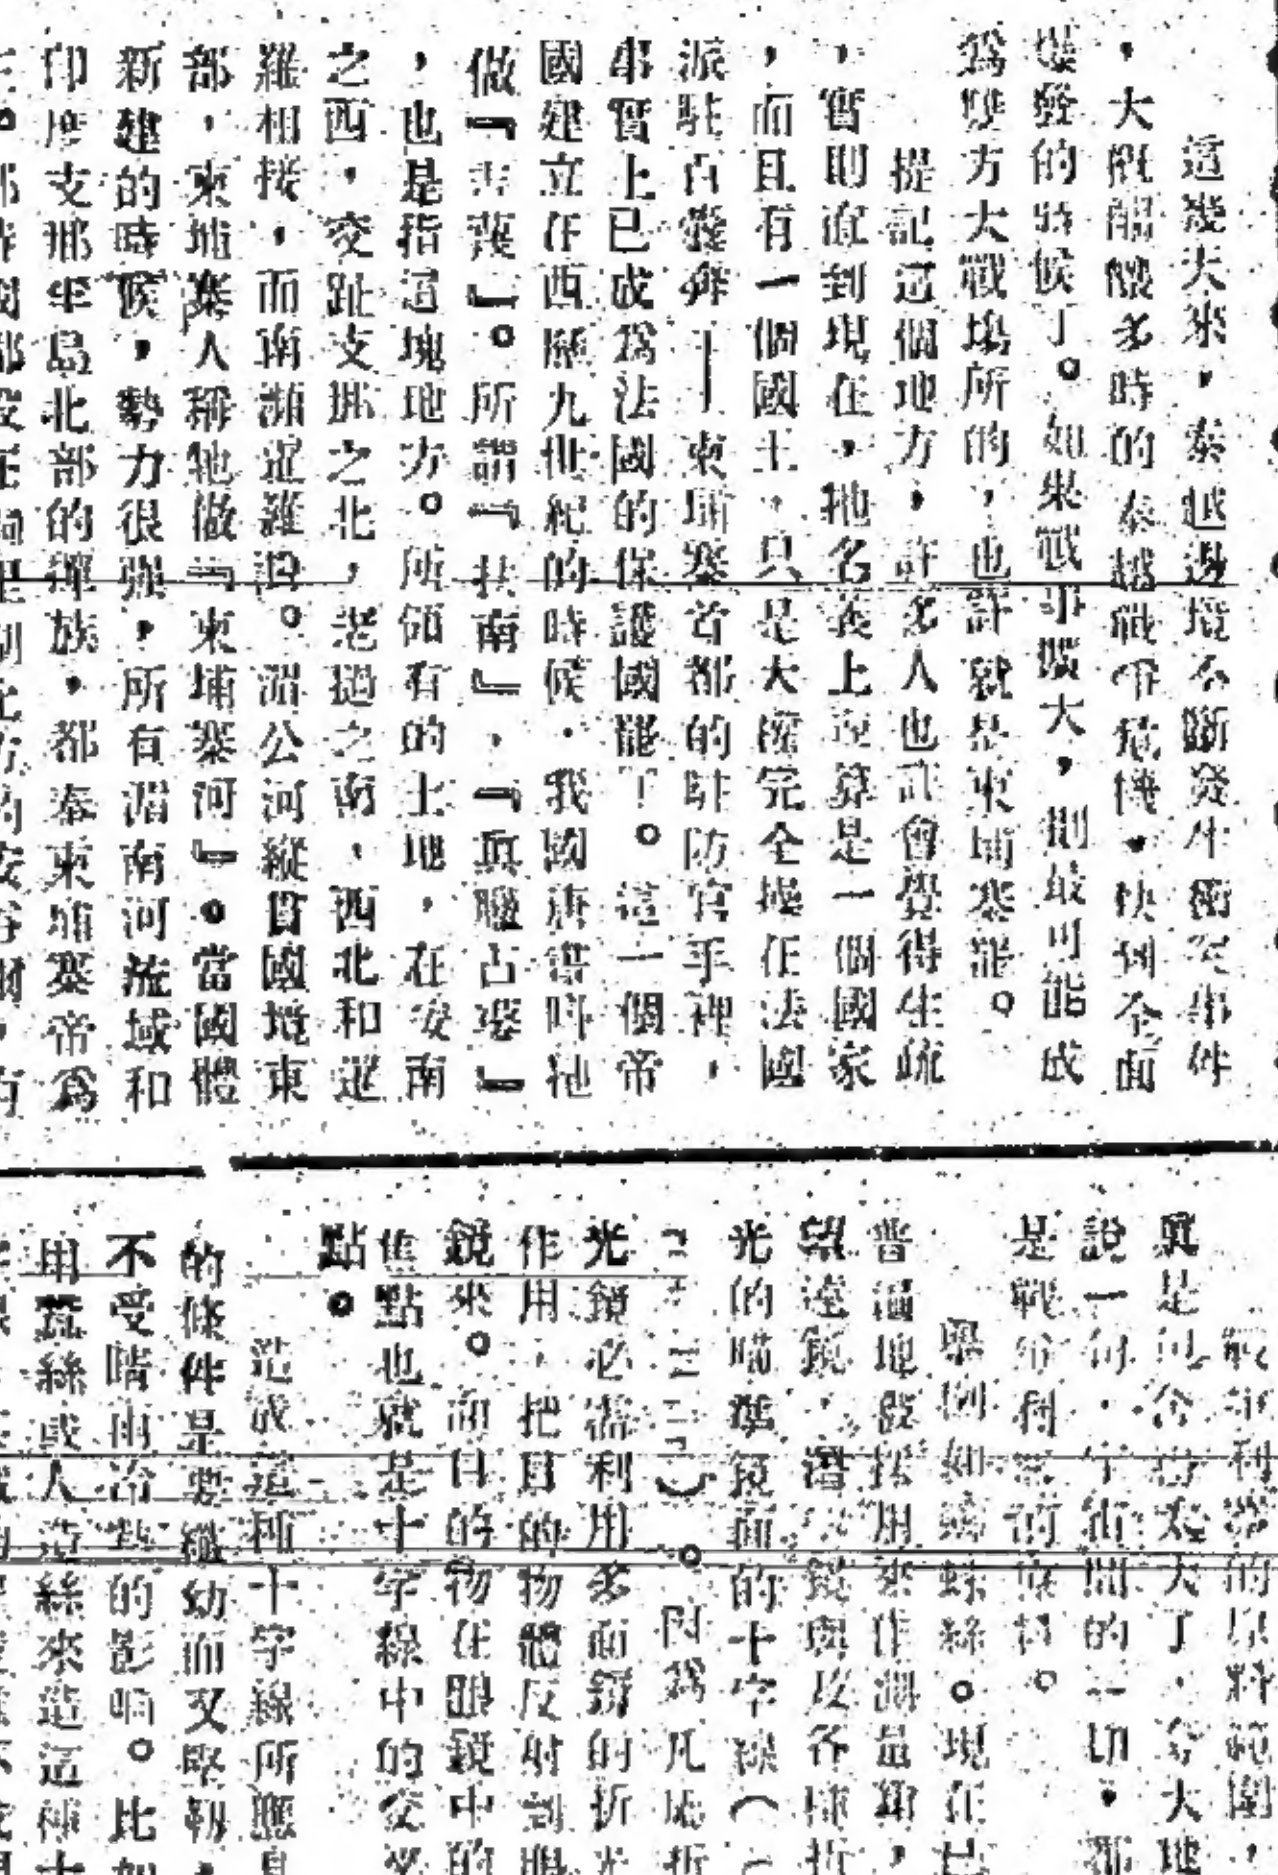 這幾天來，泰越邊境不斷發生衝突事件
，大概醞釀多時的泰越戰爭危機，快到全面
爆發的時候了。如果戰事擴大，則最可能成
爲雙方大戰場所的，也許就是東埔寨罷。
提記這個地方，許多人也許會覺得生疏
，實則直到現在，牠名義上還算是一個國家
，而且有一個國王，只是大權完全操在法國
派駐百囊奔——東埔寨首都的駐防官手裡，
事實上已成爲法國的保護國罷了。這一個帝
國建立在西曆九世紀的時候，我國唐書叫牠
做『吉蔑』。所謂『扶南』，『眞臘占婆』
，也是指這塊地方。所領有的土地，在安南
之西，交趾支那之北，老撾之南，西北和暹
羅相接，而南瀕暹羅灣。湄公河縱貫國境東
部，東埔寨人稱牠做『東埔寨河』。當國體
新建的時候，勢力很強，所有湄南河流域和
印度支那半島北部的撣族，都奉東埔寨帝爲
戰爭利器的原料範圍，
眞是包含得太大了，今大地
說一句，宇宙間的一切，都
是戰爭利器的原料。
舉例如蜘蛛絲。現在已
普通地被採用來作測量鏡，
望遠鏡，潛 鏡與及各種折
光的瞄準鏡面的十字線（
）。因爲凡屬折
光鏡必需利用多面鏡的折光
作用，把目的物體反射到眼
鏡來。而目的物在眼鏡中的
焦點也就是十字線中的交叉
點。
造成這種十字線所應具
的條件是要纖幼而又堅韌，
不受晴雨冷熱的影响。比如
用蠶絲或人造絲來造這種十